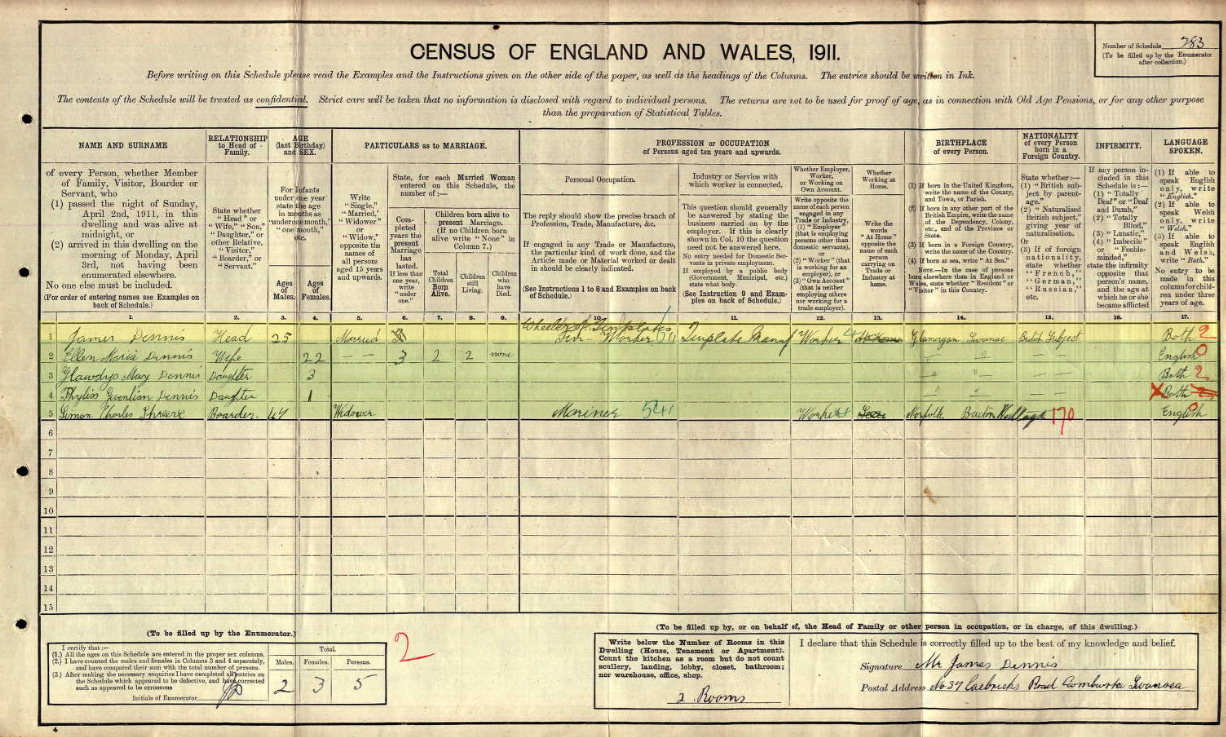 CENSUS OF ENGLAND AND WALES, 1911.
Number of Schedule 283
(To be filled up by the Enumerator
after collection.)
Before writing on this Schedule please read the Examples and the Instructions given on the other side of the paper, as well as the headings of the Columns. The entries should be written in Ink.
The contents of the Schedule will be treated as confidential. Strict care will be taken that no information is disclosed with regard to individual persons. The returns are not to be used for proof of age, as in connection with Old Age Pensions, or for any other purpose
than the preparation of Statistical Tables.
NAME AND SURNAME
of every Person, whether Member
of Family, Visitor, Boarder or
Servant, who
(1) passed the night of Sunday,
April 2nd, 1911, in this
dwelling and was alive at
midnight, or
(2) arrived in this dwelling on the
morning of Monday, April
3rd, not having been
enumerated elsewhere.
No one else must be included.
(For order of entering names see Examples on
back of Schedule.)
RELATIONSHIP
to Head of
Family.
State whether
"Head" or
"Wife," "Son,"
"Daughter," or
other Relative,
"Visitor,"
"Boarder," or
"Servant."
AGE
(last Birthday)
and SEX.
For Infants
under one year
state the age
in months as
"under one month,"
"one month,"
etc.
Ages
of
Males.
Ages
of
Females.
PARTICULARS as to MARRIAGE.
Write
"Single,"
"Married,"
"Widower,"
or
"Widow,"
opposite the
names of
all persons
aged 15 years
and upwards.
State, for each Married Woman
entered on this Schedule, the
number of:—
Completed
years the
present
Marriage
has
lasted.
If less than
one year,
write
"under
one."
Children born alive to
present Marriage.
(If no Children born
alive write "None" in
Column 7.)
Total
Children
Born
Alive.
Children
still
Living.
Children
who
have
Died.
PROFESSION or OCCUPATION
of Persons aged ten years and upwards.
Personal Occupation.
The reply should show the precise branch of
Profession, Trade, Manufacture, &c.
If engaged in any Trade or Manufacture,
the particular kind of work done, and the
Article made or Material worked or dealt
in should be clearly indicated.
(See Instructions 1 to 8 and Examples on back
of Schedule.)
Industry or Service with
which worker is connected.
This question should generally
be answered by stating the
business carried on by the
employer. If this is clearly
shown in Col. 10 the question
need not be answered here.
No entry needed for Domestic Servants
in private employment.
If employed by a public body
(Government, Municipal, etc.)
state what body.
(See Instruction 9 and Examples
on back of Schedule.)
Whether Employer,
Worker,
or Working on
Own Account.
Write opposite the
name of each person
engaged in any
Trade or Industry,
(1) "Employer"
(that is employing
persons other than
domestic servants),
or
(2) "Worker" (that
is working for an
employer), or
(3) "Own Account"
(that is neither
employing others
nor working for a
trade employer).
Whether
Working at
Home.
Write the
words
"At Home"
opposite the
name of each
person
carrying on
Trade or
Industry at
home.
BIRTHPLACE
of every Person.
(1) If born in the United Kingdom,
write the name of the County,
and Town, or Parish.
(2) If born in any other part of the
British Empire, write the name
of the Dependency, Colony,
etc., and of the Province or
State.
(3) If born in a Foreign Country,
write the name of the Country.
(4) If born at sea, write "At Sea."
NOTE.—In the case of persons
born elsewhere than in England or
Wales, state whether "Resident" or
"Visitor" in this Country.
NATIONALITY
of every Person
born in a
Foreign Country.
State whether:—
(1) "British subject
by parentage."
(2) "Naturalised
British subject,"
giving year of
naturalisation.
Or
(3) If of foreign
nationality,
state whether
"French,"
"German,"
"Russian,"
etc.
INFIRMITY.
If any person included
in this
Schedule is:—
(1) "Totally
Deaf" or "Deaf
and Dumb,"
(2) "Totally
Blind,"
(3) "Lunatic,"
(4) "Imbecile"
or "Feeble-minded,"
state the infirmity
opposite that
person's name,
and the age at
which he or she
became afflicted
LANGUAGE
SPOKEN.
(1) If able to
speak English
only, write
"English."
(2) If able to
speak Welsh
only, write
"Welsh."
(3) If able to
speak English
and Welsh,
write "Both."
No entry to be
made in this
column for children
under three
years of age.
1. 2. 3. 4. 5. 6. 7. 8. 9. 10. 11. 12. 13. 14. 15. 16. 17.
1 James Dennis Head 25 Married Tin Worker Worker At Home Glamorgan Swansea Both 2
2 Ellen Dennis Wife — — 22 3 2 2 none English 0
3 May Dennis Daughter 3 Both 2
4 Dennis Daughter 1 Both
5 Simon Charles Boarder 47 Widower Mariner 541 Worker Norfolk 170 English 0
6
7
8
9
10
11
12
13
14
15
(To be filled up by the Enumerator.)
I certify that:—
(1.) All the ages on this Schedule are entered in the proper sex columns.
(2.) I have counted the males and females in Columns 3 and 4 separately,
and have compared their sum with the total number of persons.
(3.) After making the necessary enquiries I have completed all entries on
the Schedule which appeared to be defective, and have corrected
such as appeared to be erroneous
Initials of Enumerator
Total.
Males. Females. Persons.
2 3 5
2
(To be filled up by, or on behalf of, the Head of Family or other person in occupation, or in charge, of this dwelling.)
Write below the Number of Rooms in this
Dwelling (House, Tenement or Apartment).
Count the kitchen as a room but do not count
scullery, landing, lobby, closet, bathroom;
nor warehouse, office, shop.
2 Rooms
I declare that this Schedule is correctly filled up to the best of my knowledge and belief.
Signature Mr James Dennis
Postal Address No 37 Road Swansea